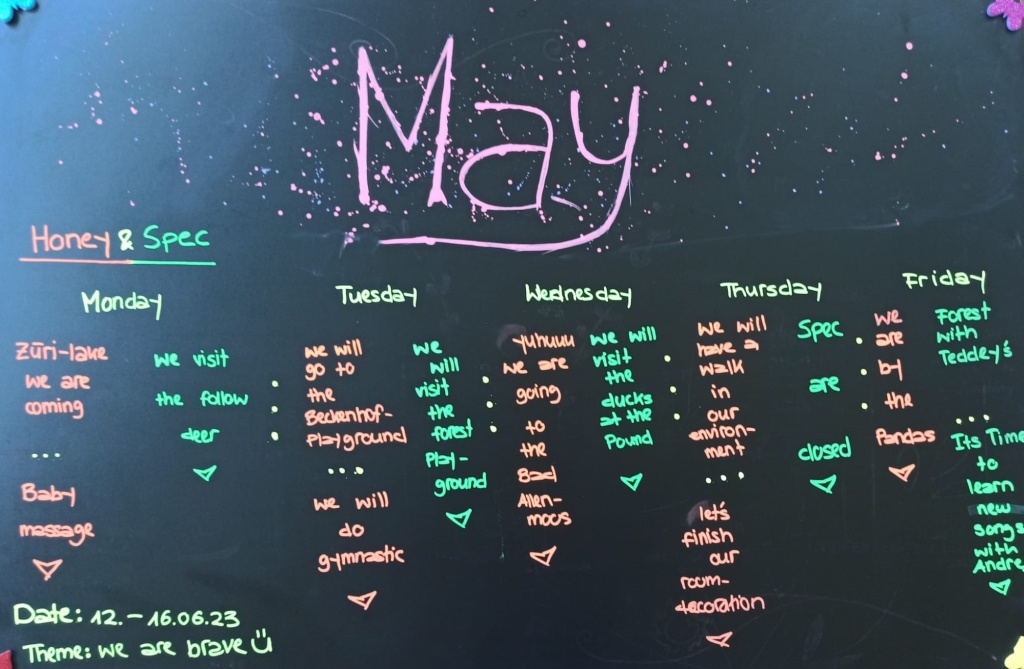 May
Honey & Spec
Monday
Züri-lake
we are
coming
...
Baby
massage
we visit
the follow
deer
Tuesday
we will
go to
the
Beckenhof-
Playground
...
we will
do
gymnastic
we
will
visit
the
forest
Play-
ground
Wednesday
Yuhuuu
we are
going
to
the
Bad
Allen-
moos
we will
visit
the
ducks
at the
Pound
Thursday
we will
have a
walk
in
our
environ-
ment
...
let's
finish
our
room-
decoration
Spec
are
closed
Friday
we
are
by
the
Pandas
Forest
with
Teddley's
...
Its Time
to
learn
new
songs
with
Andre
Date: 12.-16.06.23
Theme: we are brave